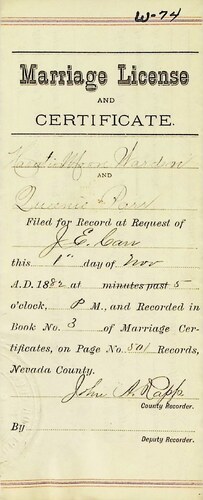 W-74
Marriage License
AND
CERTIFICATE.
Warden
AND
Queenie
Filed for Record at Request of
J. E. Carr
this 1" day of Nov
A.D. 1882 at minutes past 5
o'clock, P M., and Recorded in
Book No. 3 of Marriage Cer-
tificates, on Page No. 501 Records,
Nevada County.
John A. Rapp
County Recorder.
By
Deputy Recorder.